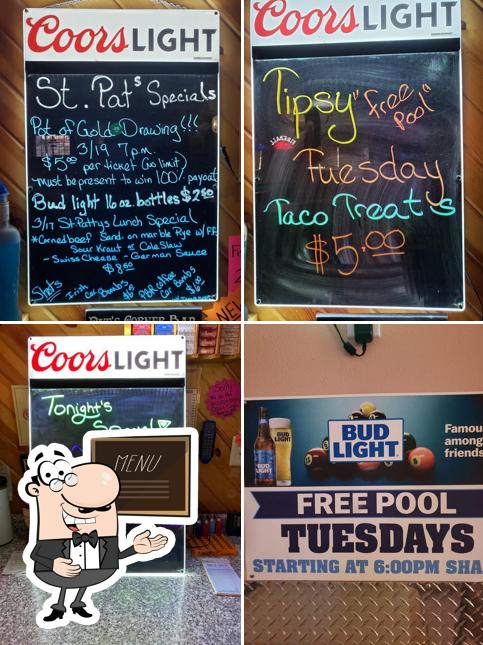 Coors LIGHT
St. Pat's Specials
Pot of Gold Drawing!!!
3/19 7p.m.
$5.00 per ticket (no limit)
*Must be present to win 100% payout
Bud light 16oz. bottles $2.50
3/17 St. Pattys Lunch Special
*Corned beef Sand. on marble Rye w/FF
Sour Kraut or Cole Slaw
- Swiss Cheese - German Sauce
$8.50
Shots
Irish Car Bombs
Car Bombs
Coors LIGHT
Tipsy "Free Pool"
Tuesday
Taco Treats
$5.00
PAT'S CORNER BAR
Coors LIGHT
Tonight's
Special
MENU
BUD LIGHT
BUD LIGHT
BUD LIGHT
Famou
among
friends
FREE POOL
TUESDAYS
STARTING AT 6:00PM SHA